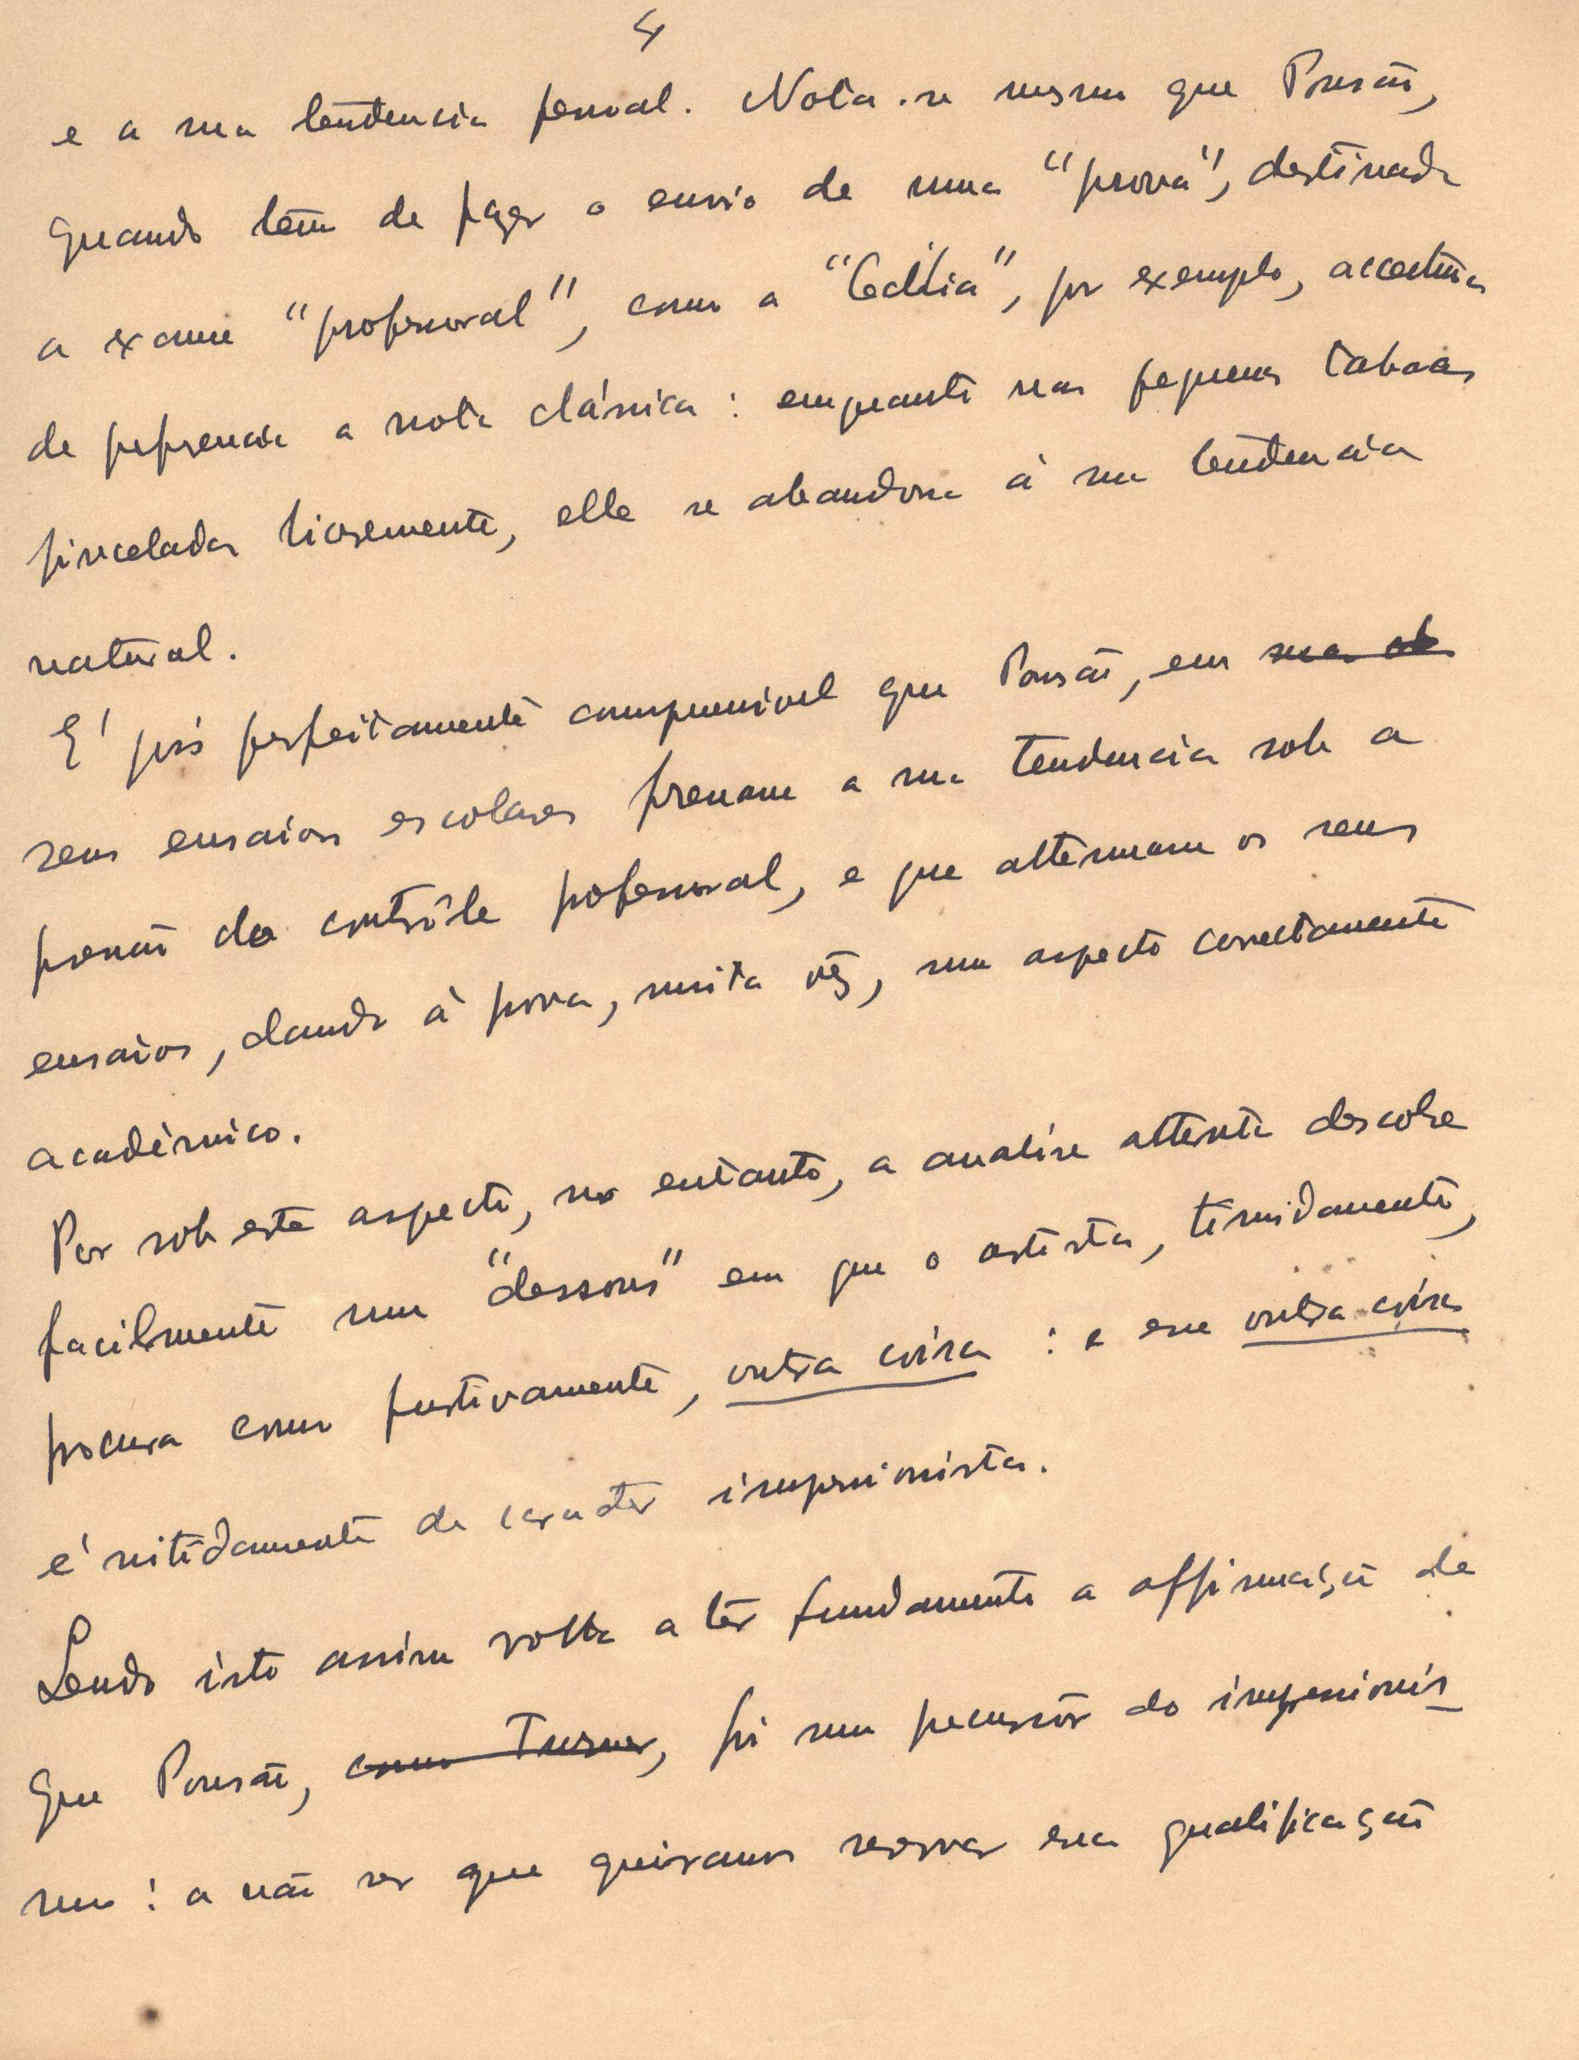 4
e a sua tendencia pessoal. Nota-se mesmo que Pousão,
quando tem de fazer o envio de uma "prova", destinada
a exame "professoral", como a "Cecilia", por exemplo, accentúa
de preferencia a nota clássica: emquanto nas pequenas taboas
pinceladas livremente, elle se abandona á sua tendencia
natural.
E' pois perfeitamente comprensivel que Pousão, em sua ob
seus ensaios escolares frenasse a sua tendencia sob a
pressão do contrôle professoral, e que attenuasse os seus
ensaios, dando á prova, muita vêz, um aspecto correctamente
académico.
Por sob este aspecto, no entanto, a analise attenta descobre
facilmente um "dessous" em que o artista, timidamente,
procura como furtivamente, outra coisa: e essa outra coisa
é nitidamente de caracter impressionista.
Sendo isto assim volta a têr fundamento a affirmação de
que Pousão, como Turner, foi um precursôr do impressionis
mo: a não ser que queiramos reservar essa qualificação